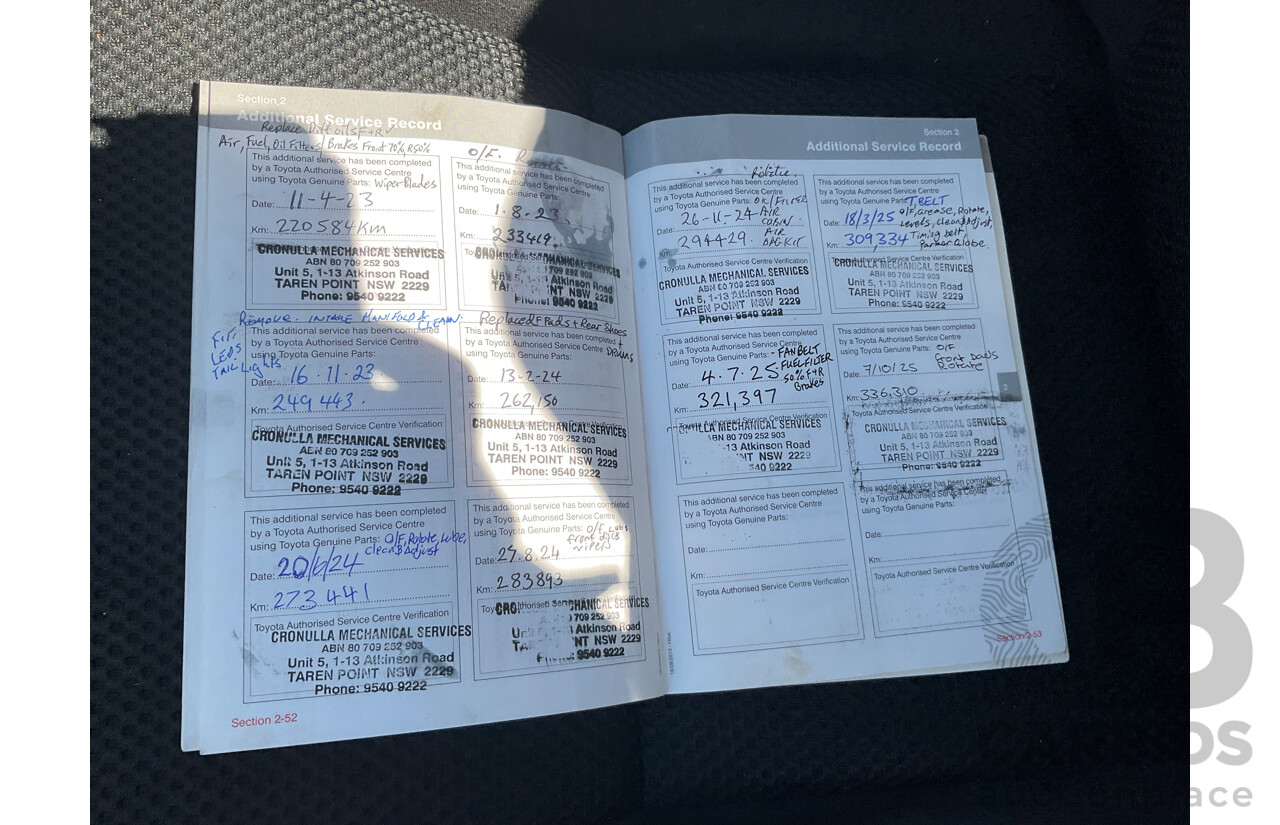 Section 2
Additional Service Record
Replace Diff oils F+R
Air, Fuel, Oil Filters/Brakes Front 70%, R50%
This additional service has been completed
by a Toyota Authorised Service Centre
using Toyota Genuine Parts: Wiper Blades
Date: 11-4-23
Km: 220584km
CRONULLA MECHANICAL SERVICES
ABN 80 709 252 903
Unit 5, 1-13 Atkinson Road
TAREN POINT NSW 2229
Phone: 9540 9222
O/F.
This additional service has been completed
by a Toyota Authorised Service Centre
using Toyota Genuine Parts:
Date: 1.8.23
Km: 233419.
MECHANICAL SERVICES
709 252 903
Atkinson Road
NT NSW 2229
Phone: 9540 9222
REMOVE. INTAKE MANIFOLD & CLEAN.
FIT
LEDS
TAIL Lights
This additional service has been completed
by a Toyota Authorised Service Centre
using Toyota Genuine Parts:
Date: 16.11.23
Km: 249443.
Toyota Authorised Service Centre Verification
CRONULLA MECHANICAL SERVICES
ABN 80 709 252 903
Unit 5, 1-13 Atkinson Road
TAREN POINT NSW 2229
Phone: 9540 9222
Replaced F Pads + Rear Shoes
+ DRUMS
This additional service has been completed
by a Toyota Authorised Service Centre
using Toyota Genuine Parts:
Date: 13-2-24
Km: 262,150
CRONULLA MECHANICAL SERVICES
ABN 80 709 252 903
Unit 5, 1-13 Atkinson Road
TAREN POINT NSW 2229
Phone: 9540 9222
This additional service has been completed
by a Toyota Authorised Service Centre
using Toyota Genuine Parts: O/F, Rotate, Lube,
clean & Adjust
Date: 20/6/24
Km: 273441
Toyota Authorised Service Centre Verification
CRONULLA MECHANICAL SERVICES
ABN 80 709 252 903
Unit 5, 1-13 Atkinson Road
TAREN POINT NSW 2229
Phone: 9540 9222
This additional service has been completed
by a Toyota Authorised Service Centre
using Toyota Genuine Parts: O/F
front
wipers
Date: 27.8.24
Km: 283893
MECHANICAL SERVICES
709 252 903
Atkinson Road
NT NSW 2229
9540 9222
Section 2-52
Section 2
Additional Service Record
Rotate
This additional service has been completed
by a Toyota Authorised Service Centre
using Toyota Genuine Parts: Oil/FILTER
Date: 26-11-24 AIR
CABIN
Km: 294429. AIR
Toyota Authorised Service Centre Verification
CRONULLA MECHANICAL SERVICES
ABN 80 709 252 903
Unit 5, 1-13 Atkinson Road
TAREN POINT NSW 2229
Phone: 9540 9222
This additional service has been completed
by a Toyota Authorised Service Centre
using Toyota Genuine Parts: T.BELT
Date: 18/3/25 O/F, Grease, Rotate,
Levels, Clean & Adjust,
Km: 309,334 Timing belt,
Parker Globe
CRONULLA MECHANICAL SERVICES
ABN 80 709 252 903
Unit 5, 1-13 Atkinson Road
TAREN POINT NSW 2229
Phone: 9540 9222
This additional service has been completed
by a Toyota Authorised Service Centre
using Toyota Genuine Parts: - FAN BELT
FUEL FILTER
Date: 4.7.25 50% F+R
Brakes
Km: 321,397
Toyota Authorised Service Centre Verification
CRONULLA MECHANICAL SERVICES
ABN 80 709 252 903
1-13 Atkinson Road
NSW 2229
540 9222
This additional service has been completed
by a Toyota Authorised Service Centre
using Toyota Genuine Parts: O/F
front pads
Date: 7/10/25 Rotate
Km: 336,310
Toyota Authorised Service Centre Verification
CRONULLA MECHANICAL SERVICES
ABN 80 709 252 903
Unit 5, 1-13 Atkinson Road
TAREN POINT NSW 2229
Phone: 9540 9222
2
This additional service has been completed
by a Toyota Authorised Service Centre
using Toyota Genuine Parts:
Date:
Km:
Toyota Authorised Service Centre Verification
This additional service has been completed
by a Toyota Authorised Service Centre
using Toyota Genuine Parts:
Date:
Km:
Toyota Authorised Service Centre Verification
Section 2-53